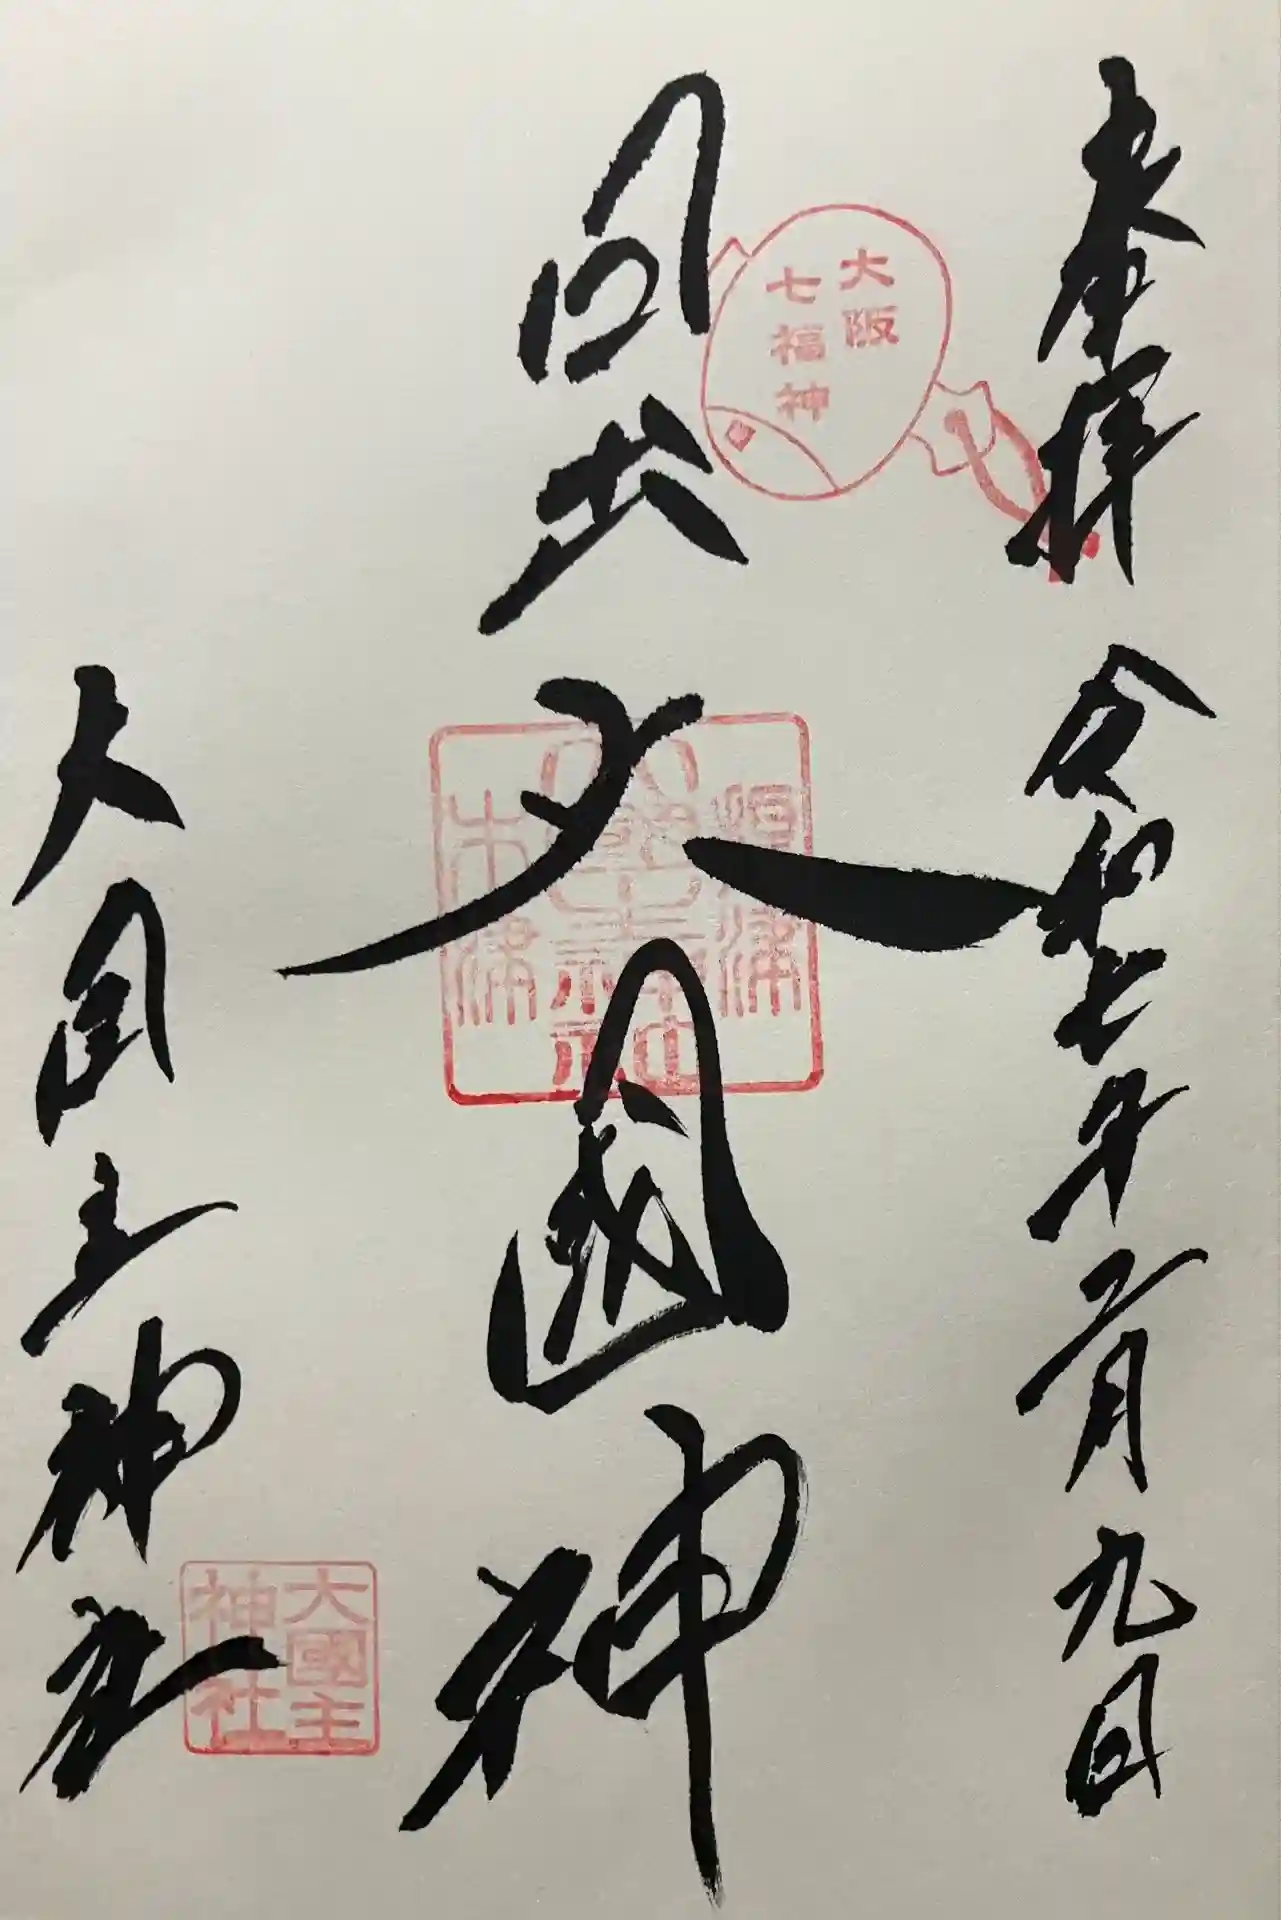 奉拝 令和七年二月九日
大阪
七福神
日出大國神
大國主神社
大國主
神社